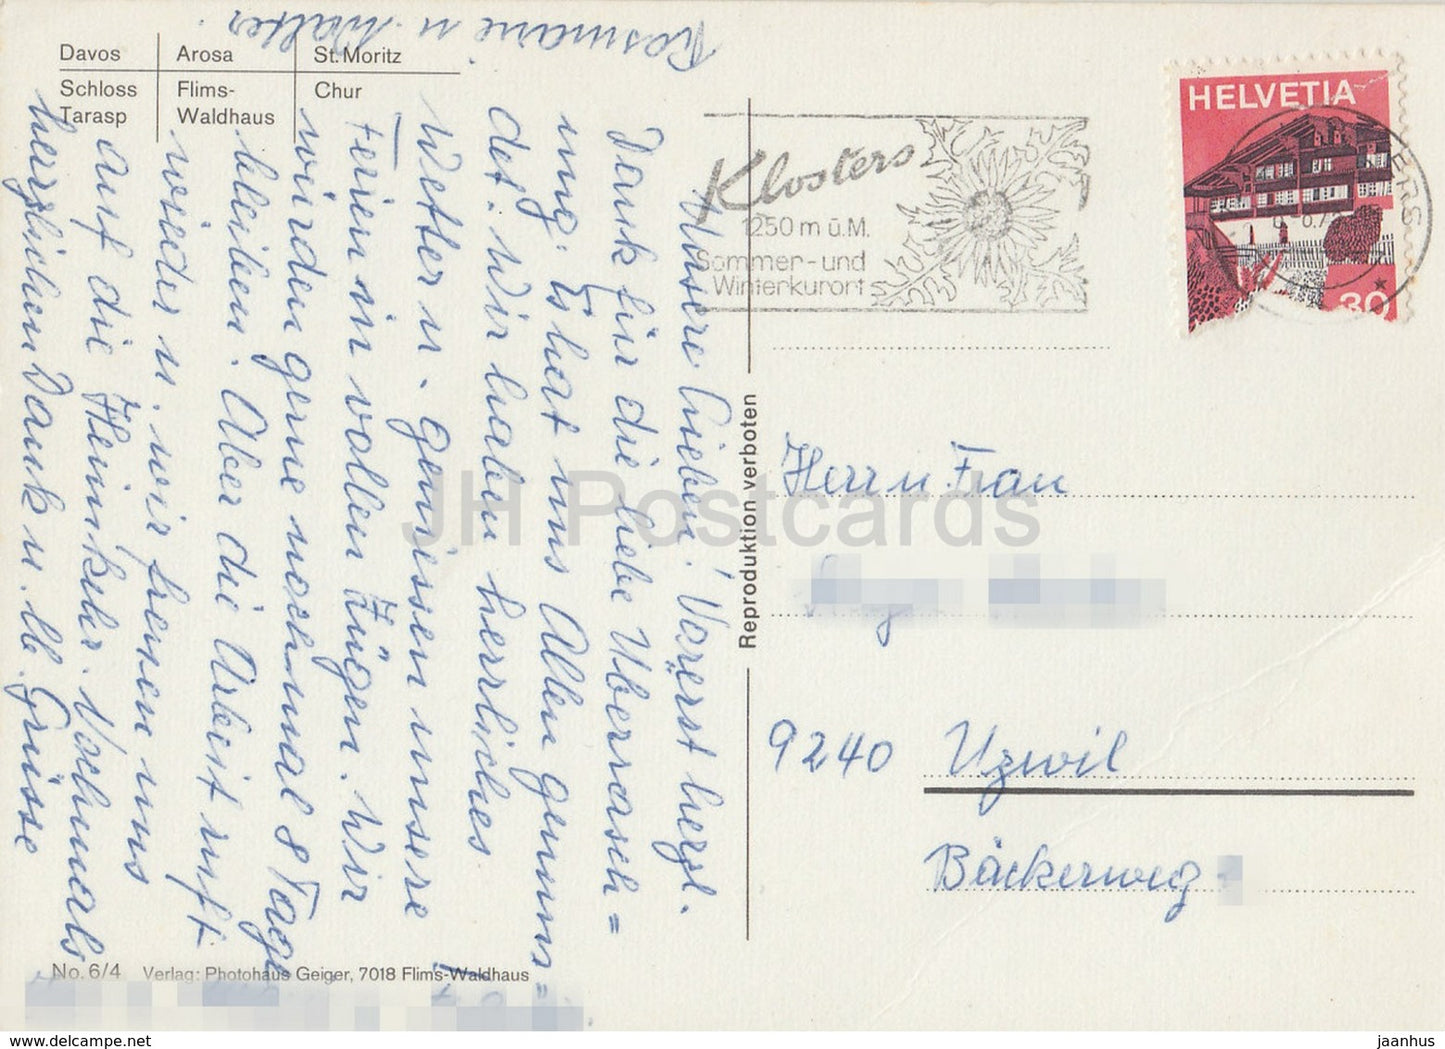 Davos Arosa St. Moritz
Schloss Tarasp Flims-Waldhaus Chur
Unsere Lieben! Vorerst herzl.
Dank für die liebe Überrasch=
ung. Es hat uns Allen gemuns=
det. Wir haben herrliches
Wetter u. geniessen unsere
Ferien in vollen Zügen. Wir
würden gerne nochmal 8 Tage
bleiben. Aber die Arbeit ruft
wieder u. wir freuen uns
auf die Heimkehr. Nochmals
herzlichen Dank u. lb. Grüsse
Rosmarie u. Walter.
No. 6/4 Verlag: Photohaus Geiger, 7018 Flims-Waldhaus
Reproduktion verboten
Klosters
1250 m ü.M.
Sommer-und
Winterkurort
HELVETIA
30
KLOSTERS
Herrn u Frau
9240 Uzwil
Bäckerweg
JH Postcards
www.delcampe.net
jaanhus